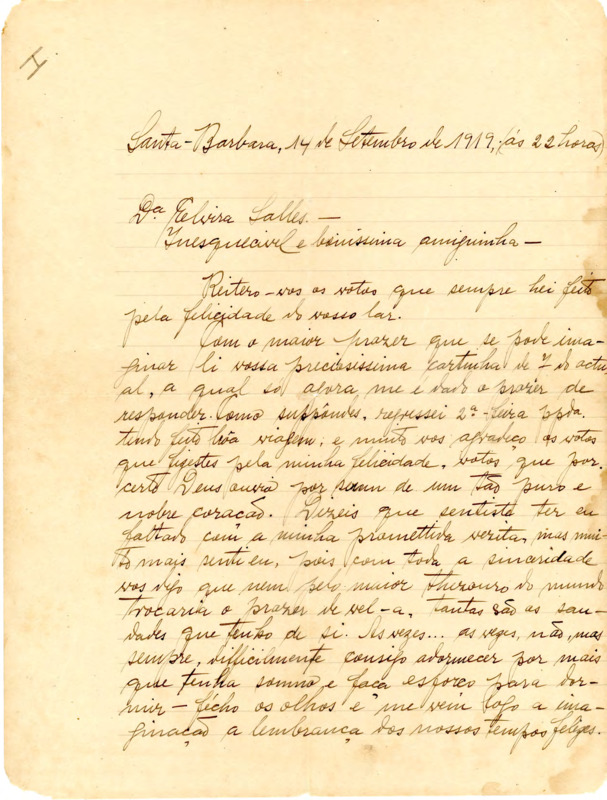 I
Santa-Barbara, 14 de Setembro de 1919, (ás 22 horas)
Da Elvira Salles. —
Inesquecivel e bonissima amiguinha —
Reitero-vos os votos que sempre hei feito
pela felicidade do vosso lar.
Com o maior prazer que se pode ima-
ginar li vossa preciosissima cartinha de 7 do actu-
al, a qual so agora me é dado o prazer de
responder. Como suppondes, regressei 2ª-feira ppda.
tendo feito bôa viagem; e muito vos agradeço os votos
que fizestes pela minha felicidade, votos que por
certo Deus ouvirá por serem de um tão puro e
nobre coração. Dizeis que sentiste ter eu
faltado com a minha promettida verita, mas mui-
to mais senti eu, pois com toda a sinceridade
vos digo que nem pelo maior thezouro do mundo
trocaria o prazer de vel-a, tantas são as sau-
dades que tenho de si. As vezes... as vezes, não, mas
sempre, difficilmente consigo adormecer por mais
que tenha somno e faça esforço para dor-
mir — fécho os olhos e me vem logo a ima-
ginação a lembrança dos nossos tempos felizes.